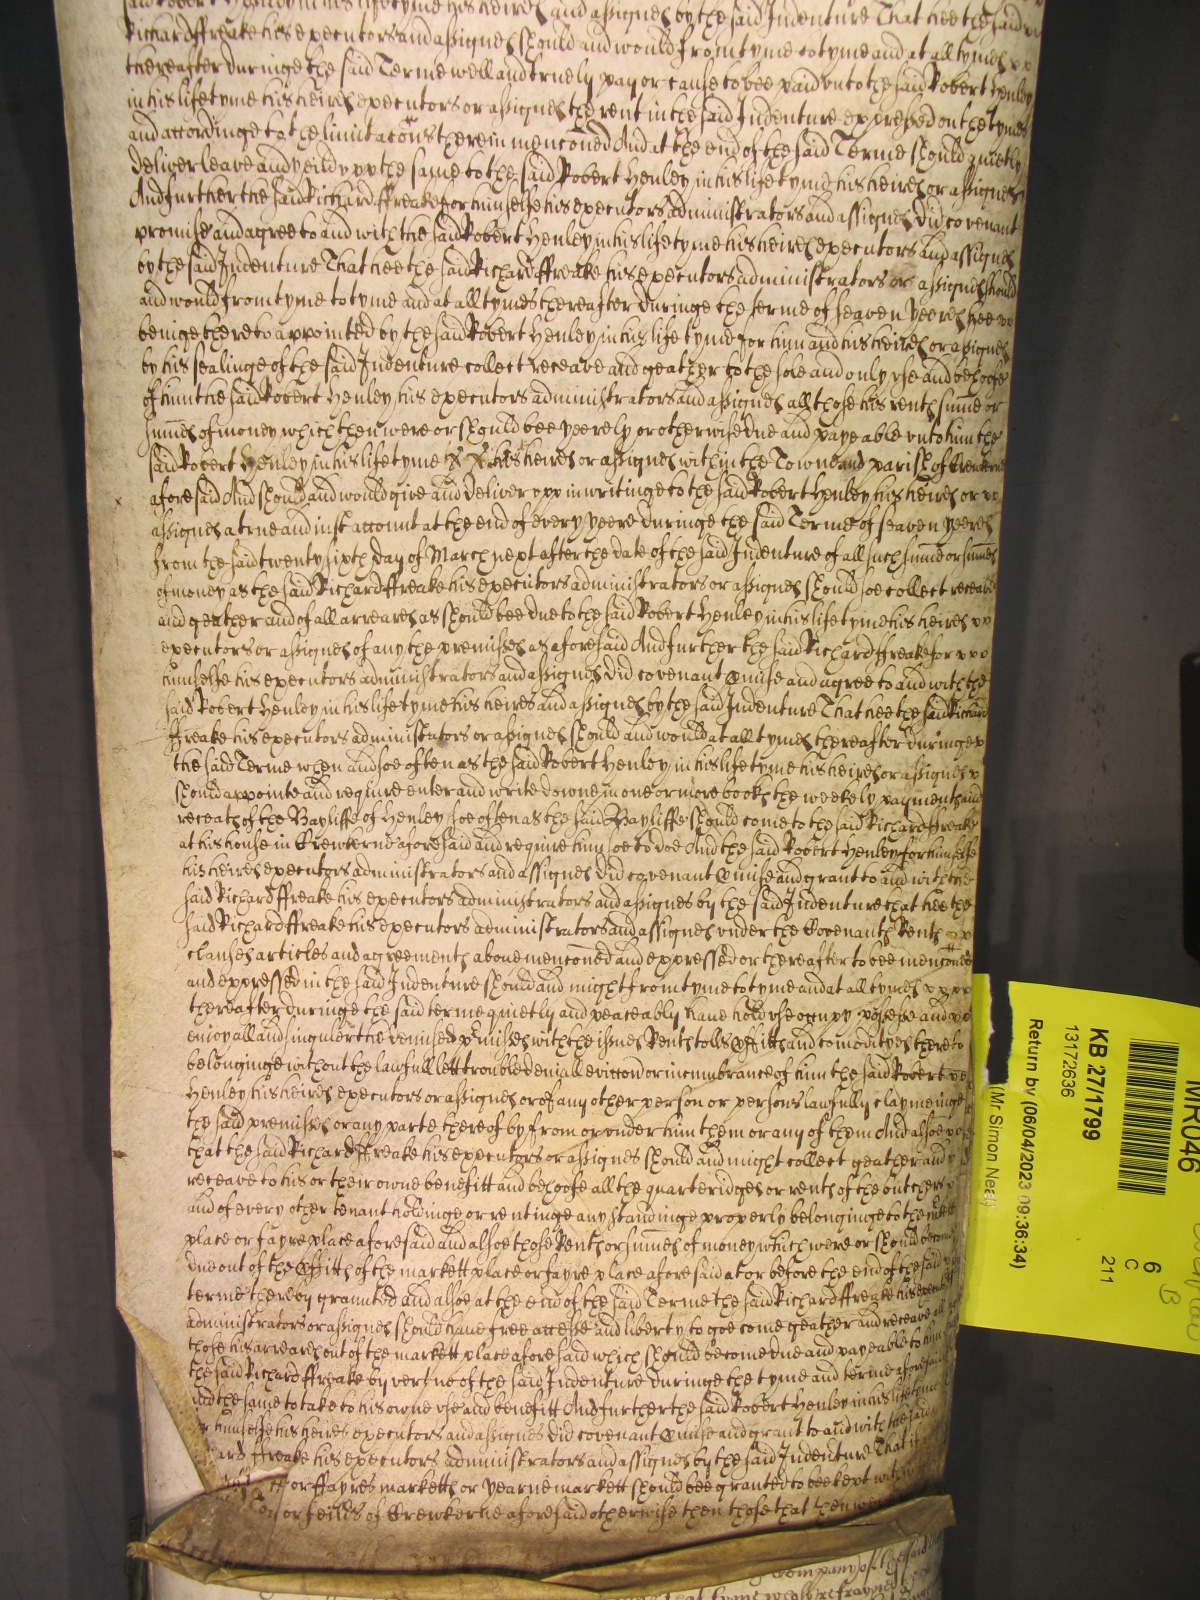 said Robert Henley in his lifetyme his heires and assignes by the said Indenture That hee the said
Richard ffreake his executors and assignes should and would from tyme to tyme and at all tymes
thereafter duringe the said Terme well and truely pay or cause to bee paid vnto the said Robert Henley
in his lifetyme his heires executors or assignes the rent in the said Indenture expressed on the tymes
and accordinge to the limitacons therein menconed And at the end of the said Terme should quietly
deliver leave and yeild vpp the same to the said Robert Henley in his lifetyme his heires or assignes
And further the said Richard ffreake for himselfe his executors administrators and assignes did covenant
promise and agree to and with the said Robert Henley in his lifetyme his heires executors and assignes
by the said Indenture That hee the said Richard ffreake his executors administrators or assignes should
and would from tyme to tyme and at all tymes thereafter duringe the terme of seaven yeeres hee
beinge thereto appointed by the said Robert Henley in his lifetyme for him and his heires or assignes
by his sealinge of the said Indenture collect receave and geather to the sole and only vse and behoofe
of him the said Robert Henley his executors administrators and assignes all those his rents sume or
sumes of money which then were or should bee yeerely or otherwise due and payeable vnto him the
said Robert Henley in his lifetyme his heires or assignes within the Towne and parish of Crewkerne
aforesaid And should and would give and deliver vpp in writinge to the said Robert Henley his heires or
assignes a true and iust accout at the end of every yeere duringe the said Terme of seaven yeeres
from the said twenty sixth day of March next after the date of the said Indenture of all such sume or sumes
of money as the said Richard ffreake his executors administrators or assignes should soe collect receave
and geather and of all arreares as should bee due to the said Robert Henley in his lifetyme his heires
executors or assignes of any the premisses as aforesaid And further the said Richard ffreake for
himselfe his executors administrators and assignes did covenant pmise and agree to and with the
said Robert Henley in his lifetyme his heires and assignes by the said Indenture That hee the said Richard
ffreake his executors administrators or assignes should and would at all tymes thereafter duringe
the said Terme when and soe often as the said Robert Henley in his lifetyme his heires or assignes
should appointe and require enter and write downe in one or more books the weekely payments and
receats of the Bayliffe of Henley soe often as the said Bayliffe should come to the said Richard ffreake
at his house in Crewkerne aforesaid and require him soe to doe And the said Robert Henley for himselfe
his heires executors administrators and assignes did covenant pmise and grant to and with the
said Richard ffreake his executors administrators and assignes by the said Indenture that hee the
said Richard ffreake his executors administrators and assignes vnder the Covenants Rents
clauses articles and agreements above menconed and expressed or thereafter to bee menconed
and expressed in the said Indenture should and might from tyme to tyme and at all tymes
thereafter duringe the said terme quietly and peaceably have hold vse occupy possesse and
enioy all and singuler the demised pmisses with the issues Rents tolls pffitts and comodityes thereto
belonginge without the lawfull lett trouble deniall eviccon or incumbrance of him the said Robert
Henley his heires executors or assignes or of any other person or persons lawfully claymeinge
the said premisses or any parte thereof by from or vnder him them or any of them And alsoe
that the said Richard ffreake his executors or assignes should and might collect geather and
receave to his or their owne benefitt and behoofe all the quarteridges or rents of the butchers
and of every other tenant holdinge or rentinge any standinge properly belonginge to the markett
place or fayre place aforesaid and alsoe those Rents or sumes of money which were or should become
due out of the pffitts of the markett place or fayre place aforesaid at or before the end of the said
terme thereby graunted and alsoe at the end of the said Terme the said Richard ffreake his executors
administrators or assignes should have free accesse and liberty to goe come geather and receave all
those his arreares out of the markett place aforesaid which should become due and payeable to him
the said Richard ffreake by vertue of the said Indenture duringe the tyme and terme aforesaid
and the same to take to his owne vse and benefitt And further the said Robert Henley in his lifetyme
for himselfe his heires executors and assignes did covenant pmise and grant to and with the said
ard ffreake his executors administrators and assignes by the said Indenture That if
or ffayres marketts or yearne markett should bee granted to bee kept within
or feilds of Crewkerne aforesaid otherwise then those that then were
Company of the said
that tyme
MR046
6
C
211
KB 27/1799
13172636
Return by (06/04/2023 09:36:34)
(Mr Simon Neal)